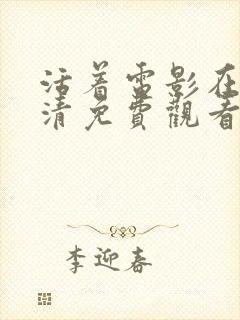 活着电影在
清免費觀看
李迎春